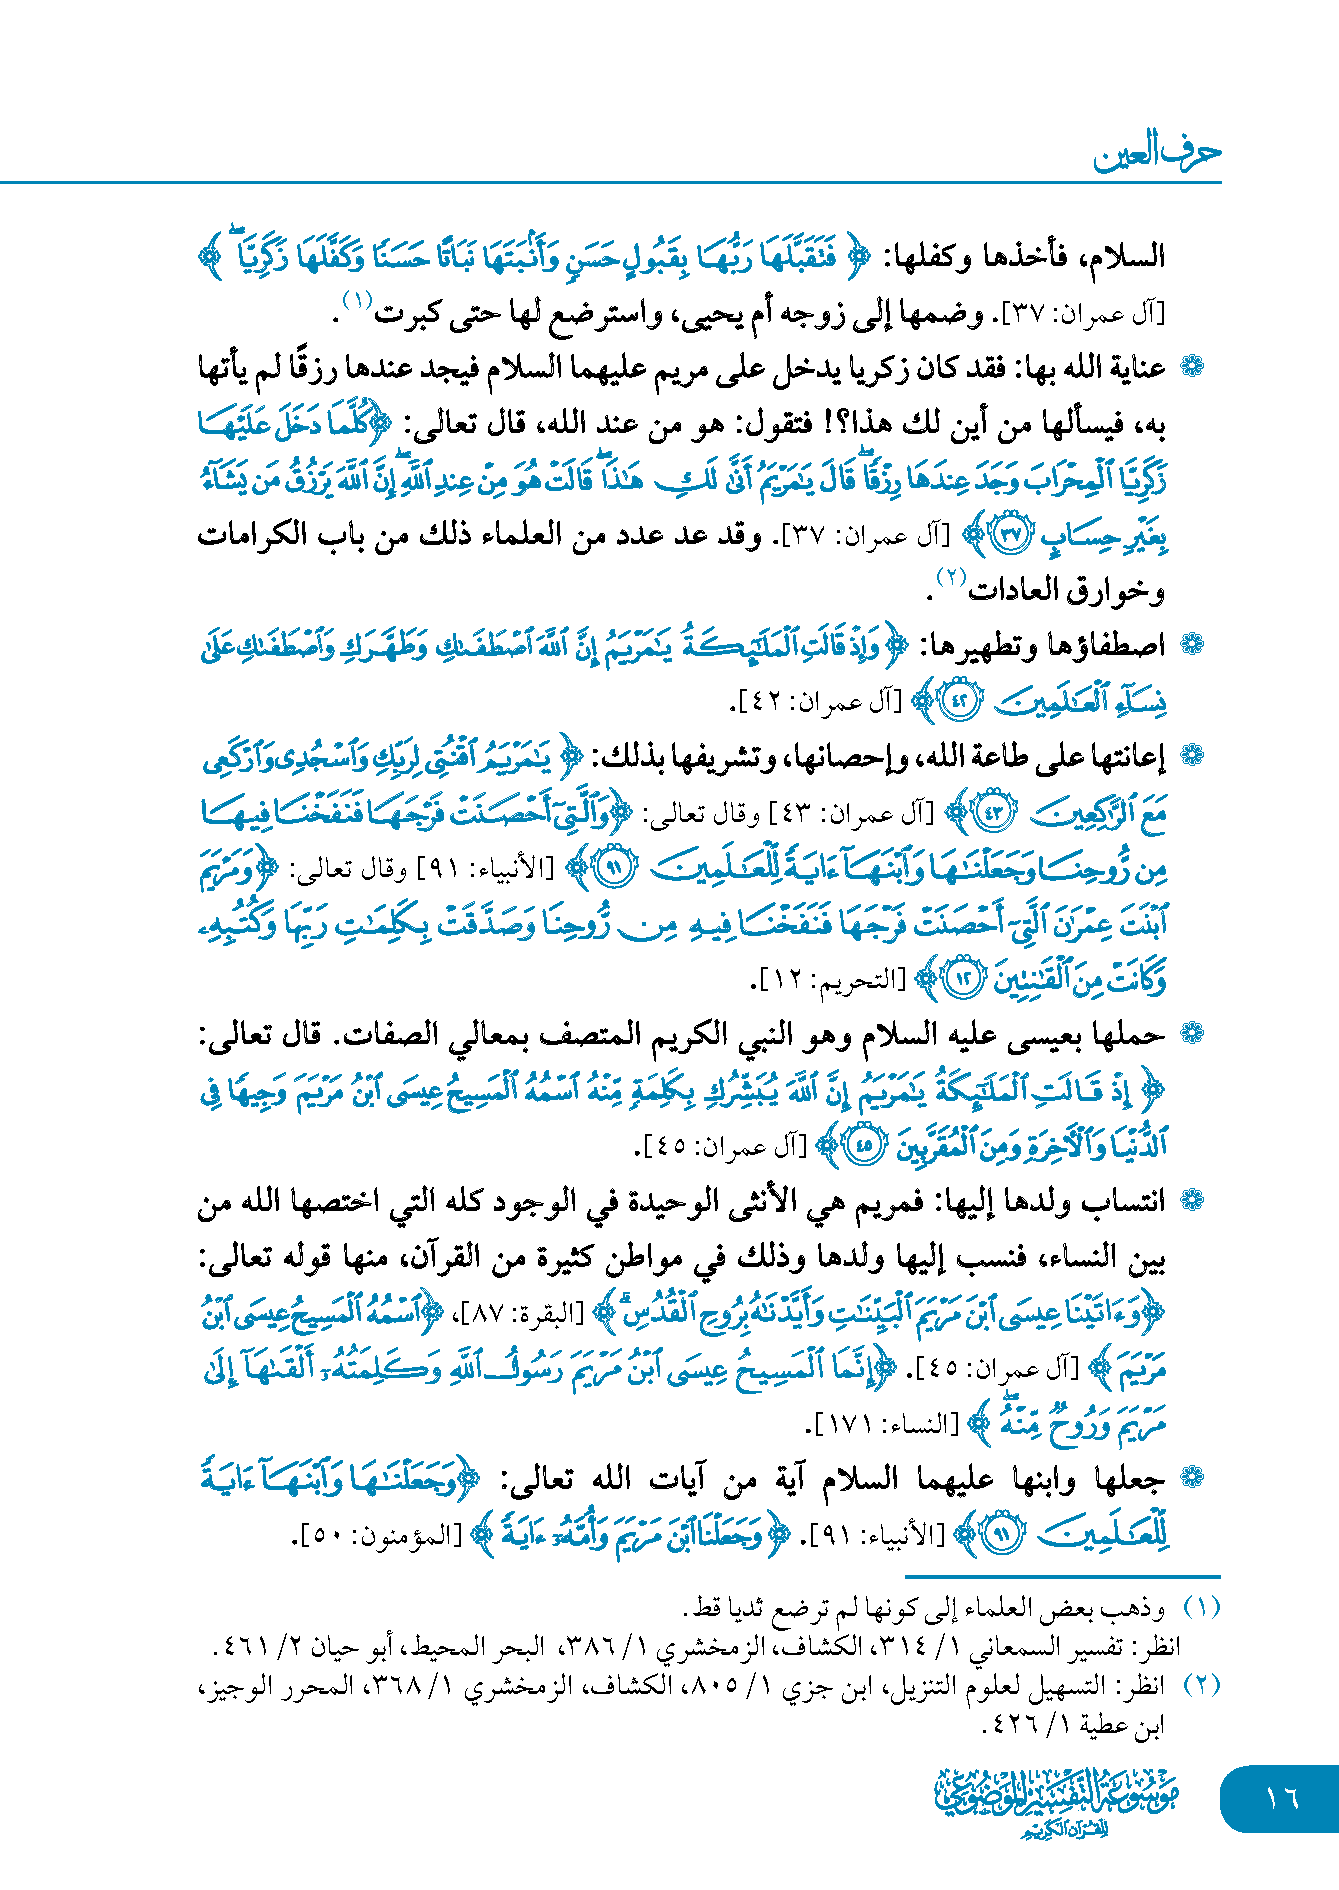 حرف العين
السلام، فأخذها وكفلها: ﴿فَتَقَبَّلَهَا رَبُّهَا بِقَبُولٍ حَسَنٍ وَأَنۢبَتَهَا نَبَاتًا حَسَنًا وَكَفَّلَهَا زَكَرِيَّاۖ ﴾
[آل عمران: ٣٧]. وضمها إلى زوجه أم يحيى، واسترضع لها حتى كبرت(١).
❁ عناية الله بها: فقد كان زكريا يدخل على مريم عليهما السلام فيجد عندها رزقًا لم يأتها
به، فيسألها من أين لك هذا؟! فتقول: هو من عند الله، قال تعالى: ﴿كُلَّمَا دَخَلَ عَلَيْهَا
زَكَرِيَّا ٱلْمِحْرَابَ وَجَدَ عِندَهَا رِزْقًاۖ قَالَ يَٰمَرْيَمُ أَنَّىٰ لَكِ هَٰذَاۖ قَالَتْ هُوَ مِنْ عِندِ ٱللَّهِۖ إِنَّ ٱللَّهَ يَرْزُقُ مَن يَشَآءُ
بِغَيْرِ حِسَابٍ ٣٧﴾ [آل عمران: ٣٧]. وقد عد عدد من العلماء ذلك من باب الكرامات
وخوارق العادات(٢).
❁ اصطفاؤها وتطهيرها: ﴿وَإِذْ قَالَتِ ٱلْمَلَٰٓئِكَةُ يَٰمَرْيَمُ إِنَّ ٱللَّهَ ٱصْطَفَىٰكِ وَطَهَّرَكِ وَٱصْطَفَىٰكِ عَلَىٰ
نِسَآءِ ٱلْعَٰلَمِينَ ٤٢﴾ [آل عمران: ٤٢].
❁ إعانتها على طاعة الله، وإحصانها، وتشريفها بذلك: ﴿يَٰمَرْيَمُ ٱقْنُتِى لِرَبِّكِ وَٱسْجُدِى وَٱرْكَعِى
مَعَ ٱلرَّٰكِعِينَ ٤٣﴾ [آل عمران: ٤٣] وقال تعالى: ﴿وَٱلَّتِىٓ أَحْصَنَتْ فَرْجَهَا فَنَفَخْنَا فِيهَا
مِن رُّوحِنَا وَجَعَلْنَٰهَا وَٱبْنَهَآ ءَايَةً لِّلْعَٰلَمِينَ ٩١﴾ [الأنبياء: ٩١] وقال تعالى: ﴿وَمَرْيَمَ
ٱبْنَتَ عِمْرَٰنَ ٱلَّتِىٓ أَحْصَنَتْ فَرْجَهَا فَنَفَخْنَا فِيهِ مِن رُّوحِنَا وَصَدَّقَتْ بِكَلِمَٰتِ رَبِّهَا وَكُتُبِهِۦ
وَكَانَتْ مِنَ ٱلْقَٰنِتِينَ ١٢﴾ [التحريم: ١٢].
❁ حملها بعيسى عليه السلام وهو النبي الكريم المتصف بمعالي الصفات. قال تعالى:
﴿ إِذْ قَالَتِ ٱلْمَلَٰٓئِكَةُ يَٰمَرْيَمُ إِنَّ ٱللَّهَ يُبَشِّرُكِ بِكَلِمَةٍ مِّنْهُ ٱسْمُهُ ٱلْمَسِيحُ عِيسَى ٱبْنُ مَرْيَمَ وَجِيهًا فِى
ٱلدُّنْيَا وَٱلْءَاخِرَةِ وَمِنَ ٱلْمُقَرَّبِينَ ٤٥﴾ [آل عمران: ٤٥].
❁ انتساب ولدها إليها: فمريم هي الأنثى الوحيدة في الوجود كله التي اختصها الله من
بين النساء، فنسب إليها ولدها وذلك في مواطن كثيرة من القرآن، منها قوله تعالى:
﴿وَءَاتَيْنَا عِيسَى ٱبْنَ مَرْيَمَ ٱلْبَيِّنَٰتِ وَأَيَّدْنَٰهُ بِرُوحِ ٱلْقُدُسِۗ ﴾ [البقرة: ٨٧]، ﴿ٱسْمُهُ ٱلْمَسِيحُ عِيسَى ٱبْنُ
مَرْيَمَ ﴾ [آل عمران: ٤٥]. ﴿إِنَّمَا ٱلْمَسِيحُ عِيسَى ٱبْنُ مَرْيَمَ رَسُولُ ٱللَّهِ وَكَلِمَتُهُۥٓ أَلْقَىٰهَآ إِلَىٰ
مَرْيَمَ وَرُوحٌ مِّنْهُۖ ﴾ [النساء: ١٧١].
❁ جعلها وابنها عليهما السلام آية من آيات الله تعالى: ﴿وَجَعَلْنَٰهَا وَٱبْنَهَآ ءَايَةً
لِّلْعَٰلَمِينَ ٩١﴾ [الأنبياء: ٩١]. ﴿وَجَعَلْنَا ٱبْنَ مَرْيَمَ وَأُمَّهُۥٓ ءَايَةً ﴾ [المؤمنون: ٥٠].
(١) وذهب بعض العلماء إلى كونها لم ترضع ثديا قط.
انظر: تفسير السمعاني ١/ ٣١٤، الكشاف، الزمخشري ١/ ٣٨٦، البحر المحيط، أبو حيان ٢/ ٤٦١.
(٢) انظر: التسهيل لعلوم التنزيل، ابن جزي ١/ ٨٠٥، الكشاف، الزمخشري ١/ ٣٦٨، المحرر الوجيز،
ابن عطية ١/ ٤٢٦.
موسوعة التفسير الموضوعي
للقرآن الكريم
١٦